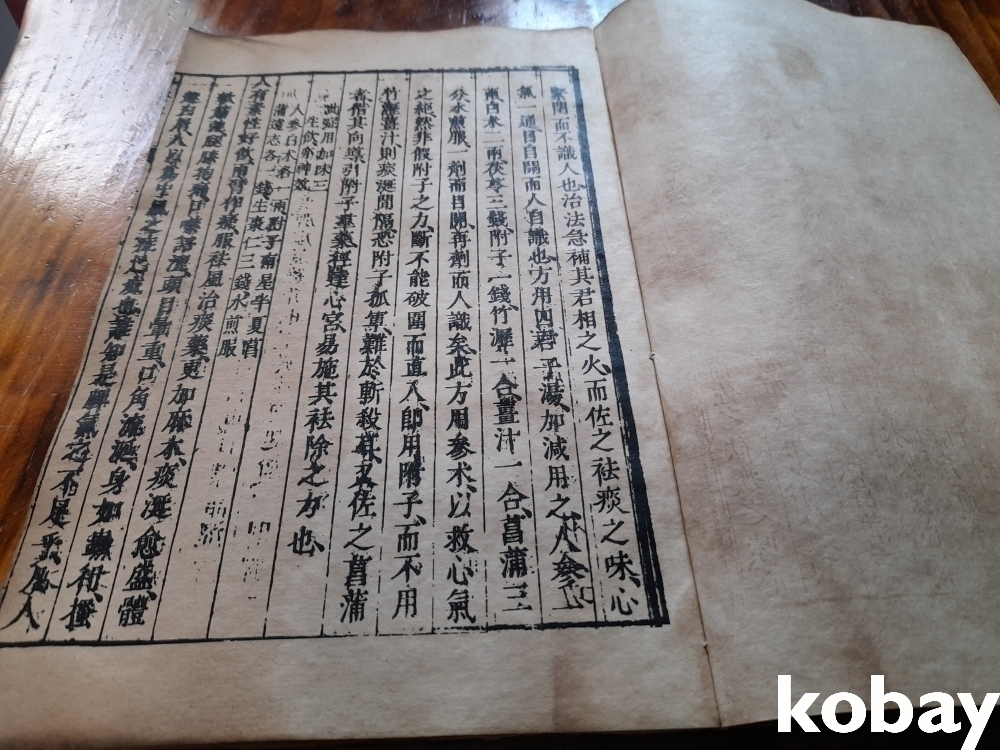 緊閉而不識人也治法急補其君相之火而佐之祛痰之味心
氣一通目自開而人自識也方用四君子湯加減用之人參二
兩白朮二兩茯苓三錢附子一錢竹瀝一合薑汁一合菖蒲三
分水煎服一劑而目開再劑而人識矣此方用參朮以救心氣
之絕然非假附子之力斷不能破圍而直入即用附子而不用
竹瀝薑汁則痰涎間隔恐附子孤集難於斬殺其又佐之菖蒲
者借其向導引附子羣藥徑達心宮易施其祛除之力也
此症用加味三
生飲亦神效
人參白朮各一兩附子南星半夏菖
蒲遠志各一錢生棗仁三錢水煎服
人有素性好飲雨宵作療服祛風治痰藥更加麻木痰涎愈盛體
語澀頭目重口角流涎身如蟲行
人以為中風之症也誰知是脾氣之不足乎人
kobay